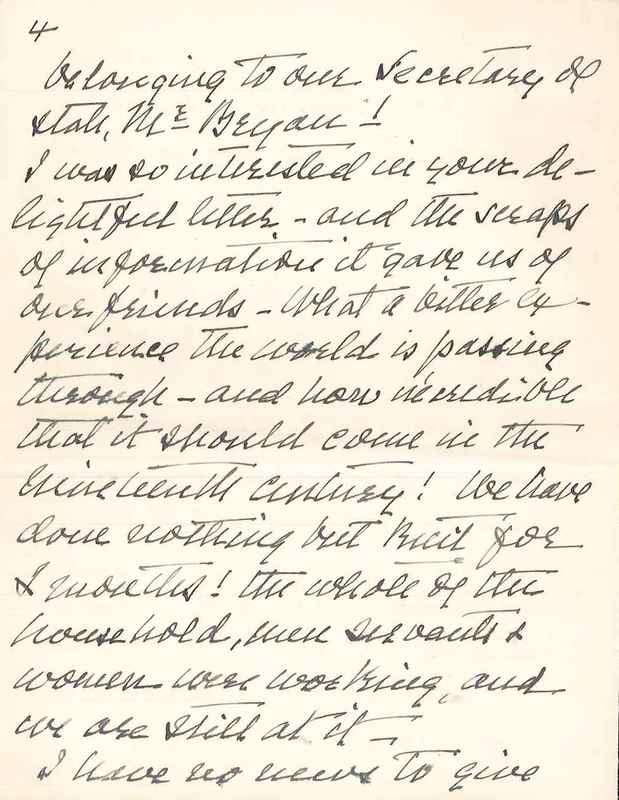 4
belonging to our Secretary of
State, Mr Bryan!
I was so interested in your de-
lightful letter - and the scraps
of information it gave us of
our friends - What a bitter ex-
perience the world is passing
through - and how incredible
that it should come in the
nineteenth century! We have
done nothing but knit for
months! the whole of the
household, men servants &
women were working, and
we are still at it -
I have no news to give